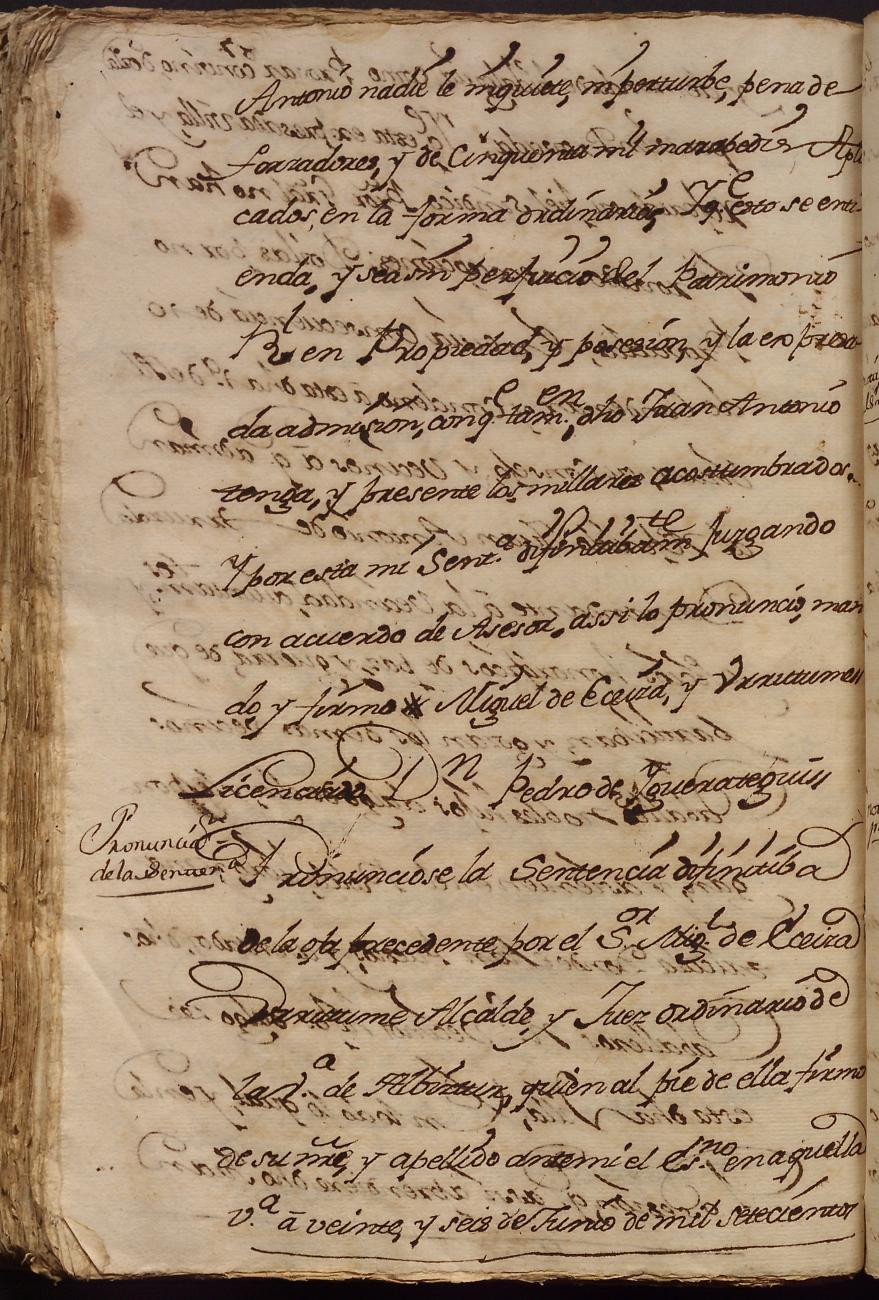 Antonio nadie le inquiete, ni perturbe, pena de
forzadores, y de Cinquenta mil marabedis Apli
cados, en la forma ordinaria, Y q.e esto se enti-
enda, y sea sin perjuicio del Patrimonio
R.l en Propiedad, y posesion, y la expresa-
da admision, con q.e tam.en dho Juan Antonio
tenga, y presente los millares acostumbrados.
Y por esta mi Sent.a difinitiba juzgando
con acuerdo de Asesor, assi lo pronuncio, man
do y firmo Miguel de Eceiza, y Yrruitume
Licenciado D.n Pedro de Yguerategui
Pronunciaz.n
de la Sentencia
Pronunciose la Sentencia difinitiba
de la oja precedente por el S.or Mig.l de Eceiza
Yrruitume Alcalde, y Juez ordinario de
la V.a de Albiztur, quien al pie de ella firmo
de su nre, y apellido ante mi el Es.no en aquella
v.a á veinte, y seis de Junio de mil setecientos